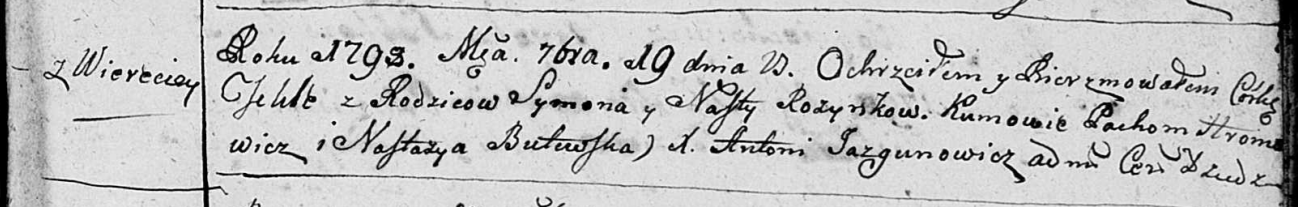 z Wiereciey
Roku 1793. Mca. 7bra. 19 dnia V. Ochrzciłem y Bierzmowałem Córkę
Teklę z Rodzicow Symona y Nasty Rozynkow. Kumowie Pachom Hrom
wicz i Nastazya Butewska) X. Antoni Jazgunowicz adm Cer Dzedz